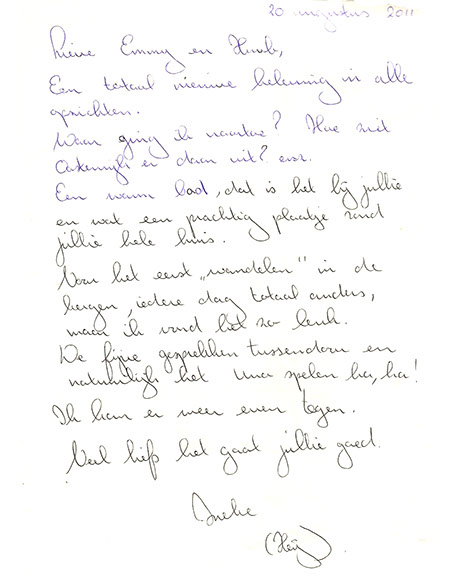 20 augustus 2011
Lieve Emmy en Huub,
Een totaal nieuwe beleving in alle
opzichten.
Waar ging ik naartoe? Hoe ziet
Oostenrijk er daar uit? enz.
Een warm bad, dat is het bij jullie
en wat een prachtig plaatje rond
jullie hele huis.
Voor het eerst „wandelen" in de
bergen, iedere dag totaal anders,
maar ik vond het zo leuk.
De fijne gesprekken tussendoor en
natuurlijk het Uno spelen ha, ha!
Ik kan er weer even tegen.
Veel liefs het gaat jullie goed.
Ineke